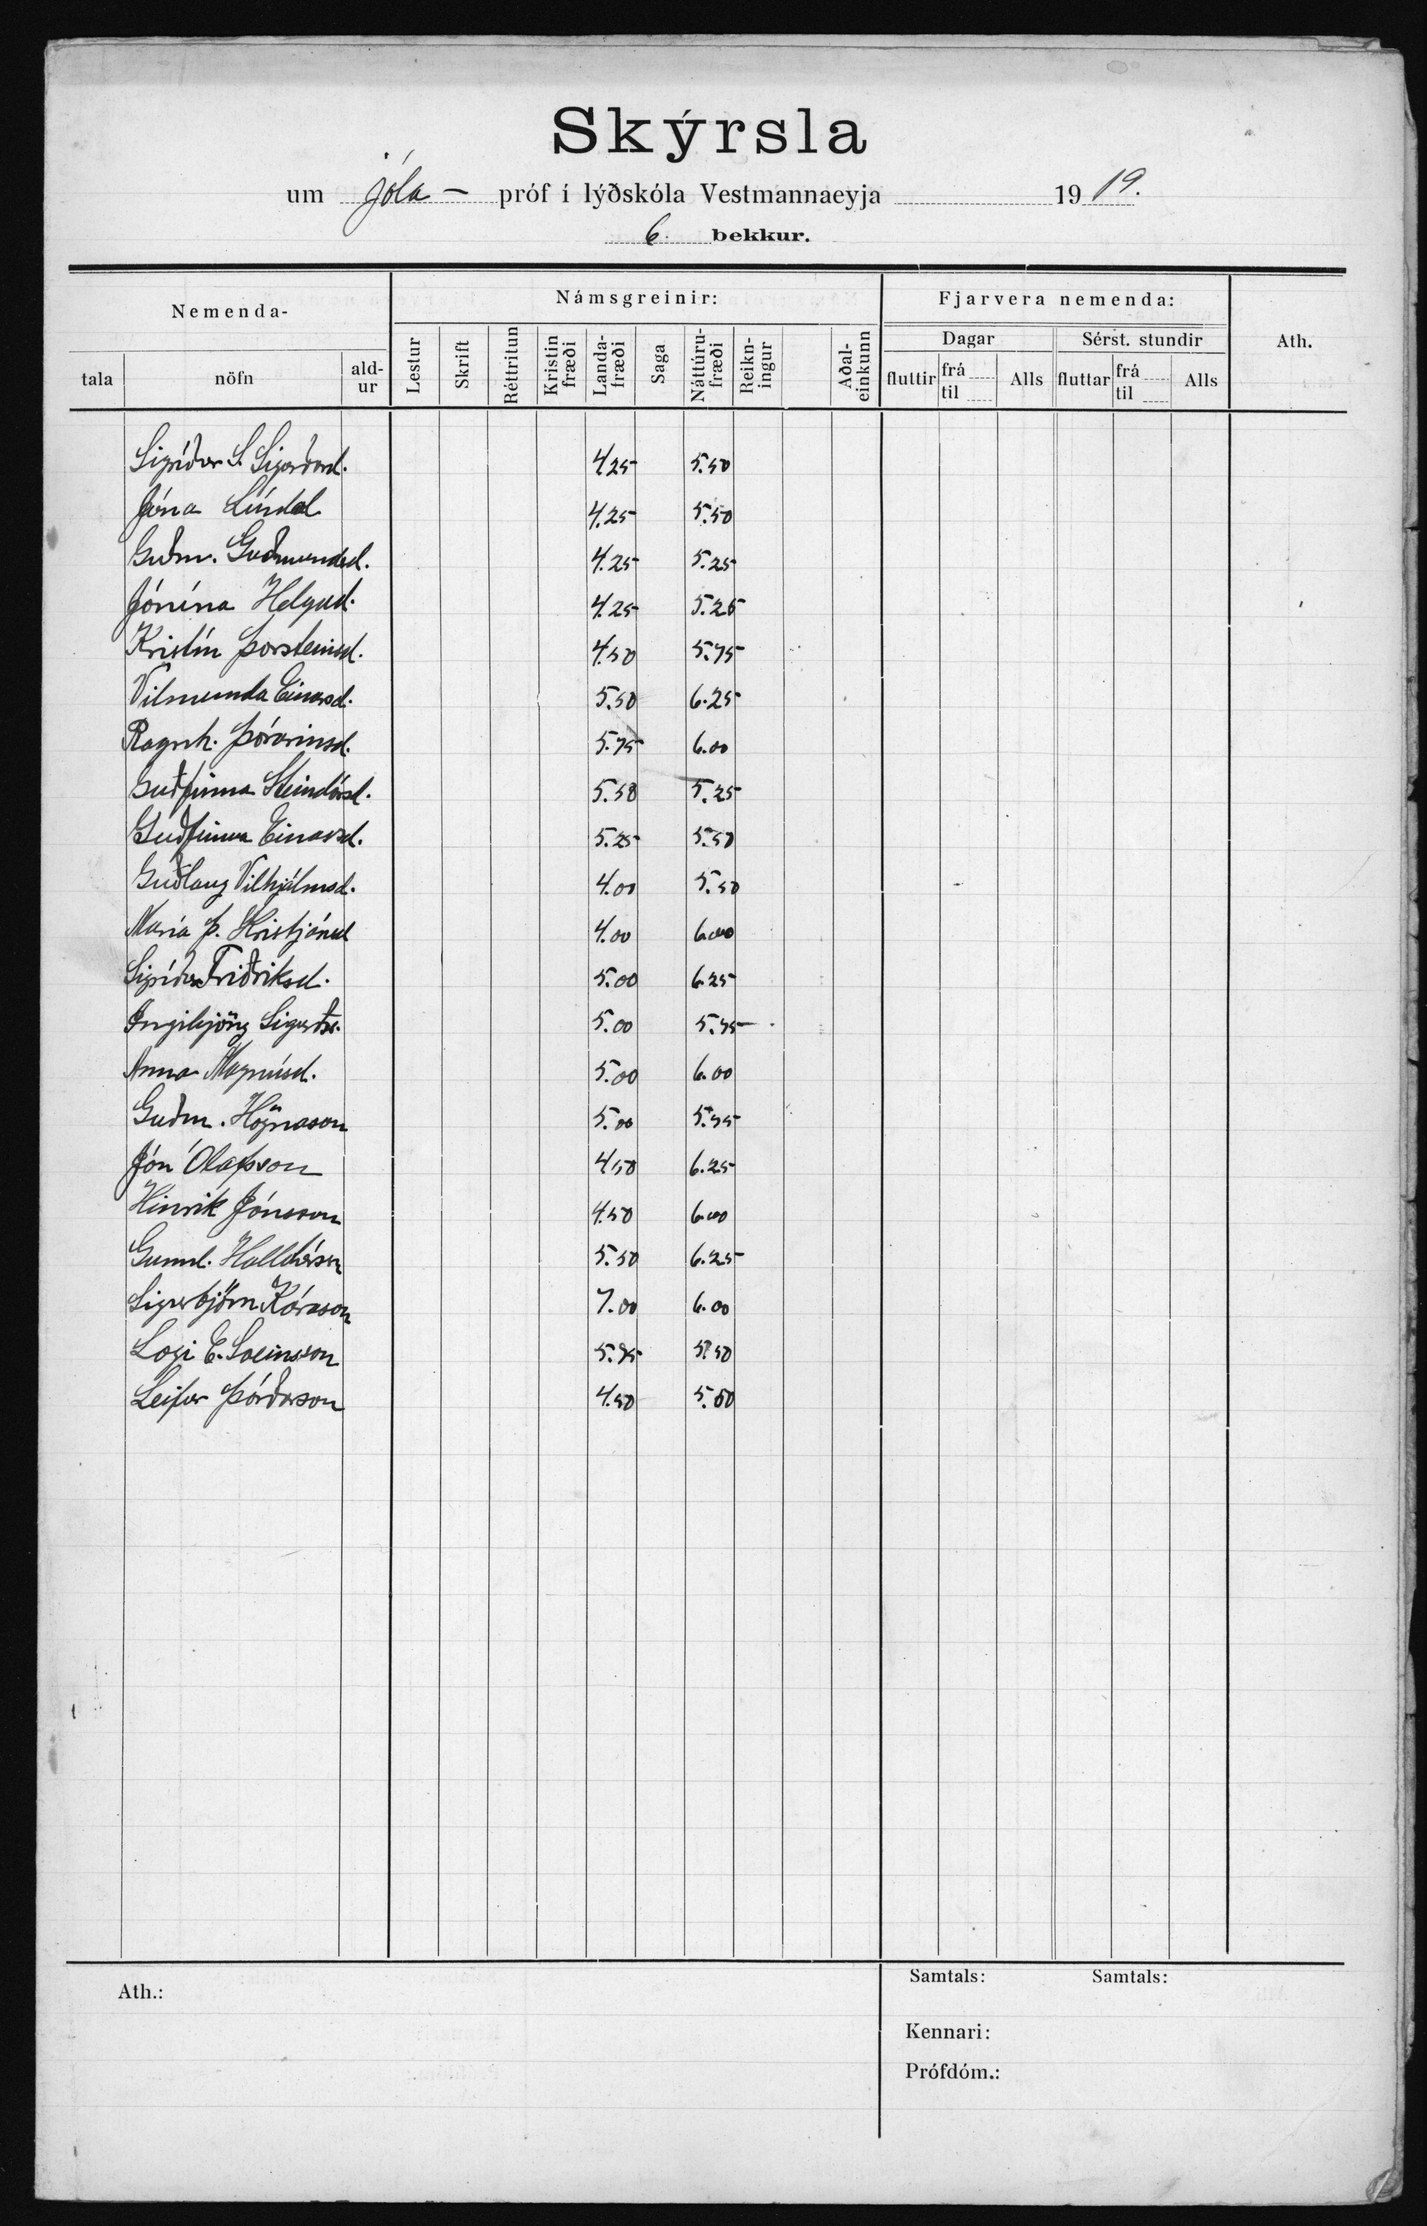 Skýrsla
um jóla- próf í lýðskóla Vestmannaeyja 1919.
6 bekkur.
Nemenda-
Námsgreinir:
Fjarvera nemenda:
Ath.
Dagar
Sérst. stundir
tala
nöfn
ald-
ur
Lestur
Skrift
Réttritun
Kristin
fræði
Landa-
fræði
Saga
Náttúru-
fræði
Reikn-
ingur
Aðal-
einkunn
fluttir
frá
til
Alls
fluttar
frá
til
Alls
Sigríður S. Sigurðard. 4.25 5.50
Jóna Líndal 4.25 5.50
Guðm. Guðmundsd. 4.25 5.25
Jónína Helgad. 4.25 5.25
Kristín Þorsteinsd. 4.50 5.75
Vilmunda Einarsd. 5.50 6.25
Ragnh. Þórarinsd. 5.75 6.00
Guðfinna Steindórsd. 5.50 5.25
Guðfinna Einarsd. 5.25 5.50
Guðlaug Vilhjálmsd. 4.00 5.50
María Þ. Kristjánsd 4.00 6.00
Sigríður Friðriksd. 5.00 6.25
Ingibjörg Sigurðs. 5.00 5.75
Anna Magnúsd. 5.00 6.00
Guðm. Högnason 5.00 5.75
Jón Ólafsson 4.50 6.25
Hinrik Jónsson 4.50 6.00
Gunnl. Halldórsson 5.50 6.25
Sigurbjörn Kárason 7.00 6.00
Logi E. Sveinsson 5.75 5.50
Leifur Þórðarson 4.50 5.50
Ath.:
Samtals: Samtals:
Kennari:
Prófdóm.: